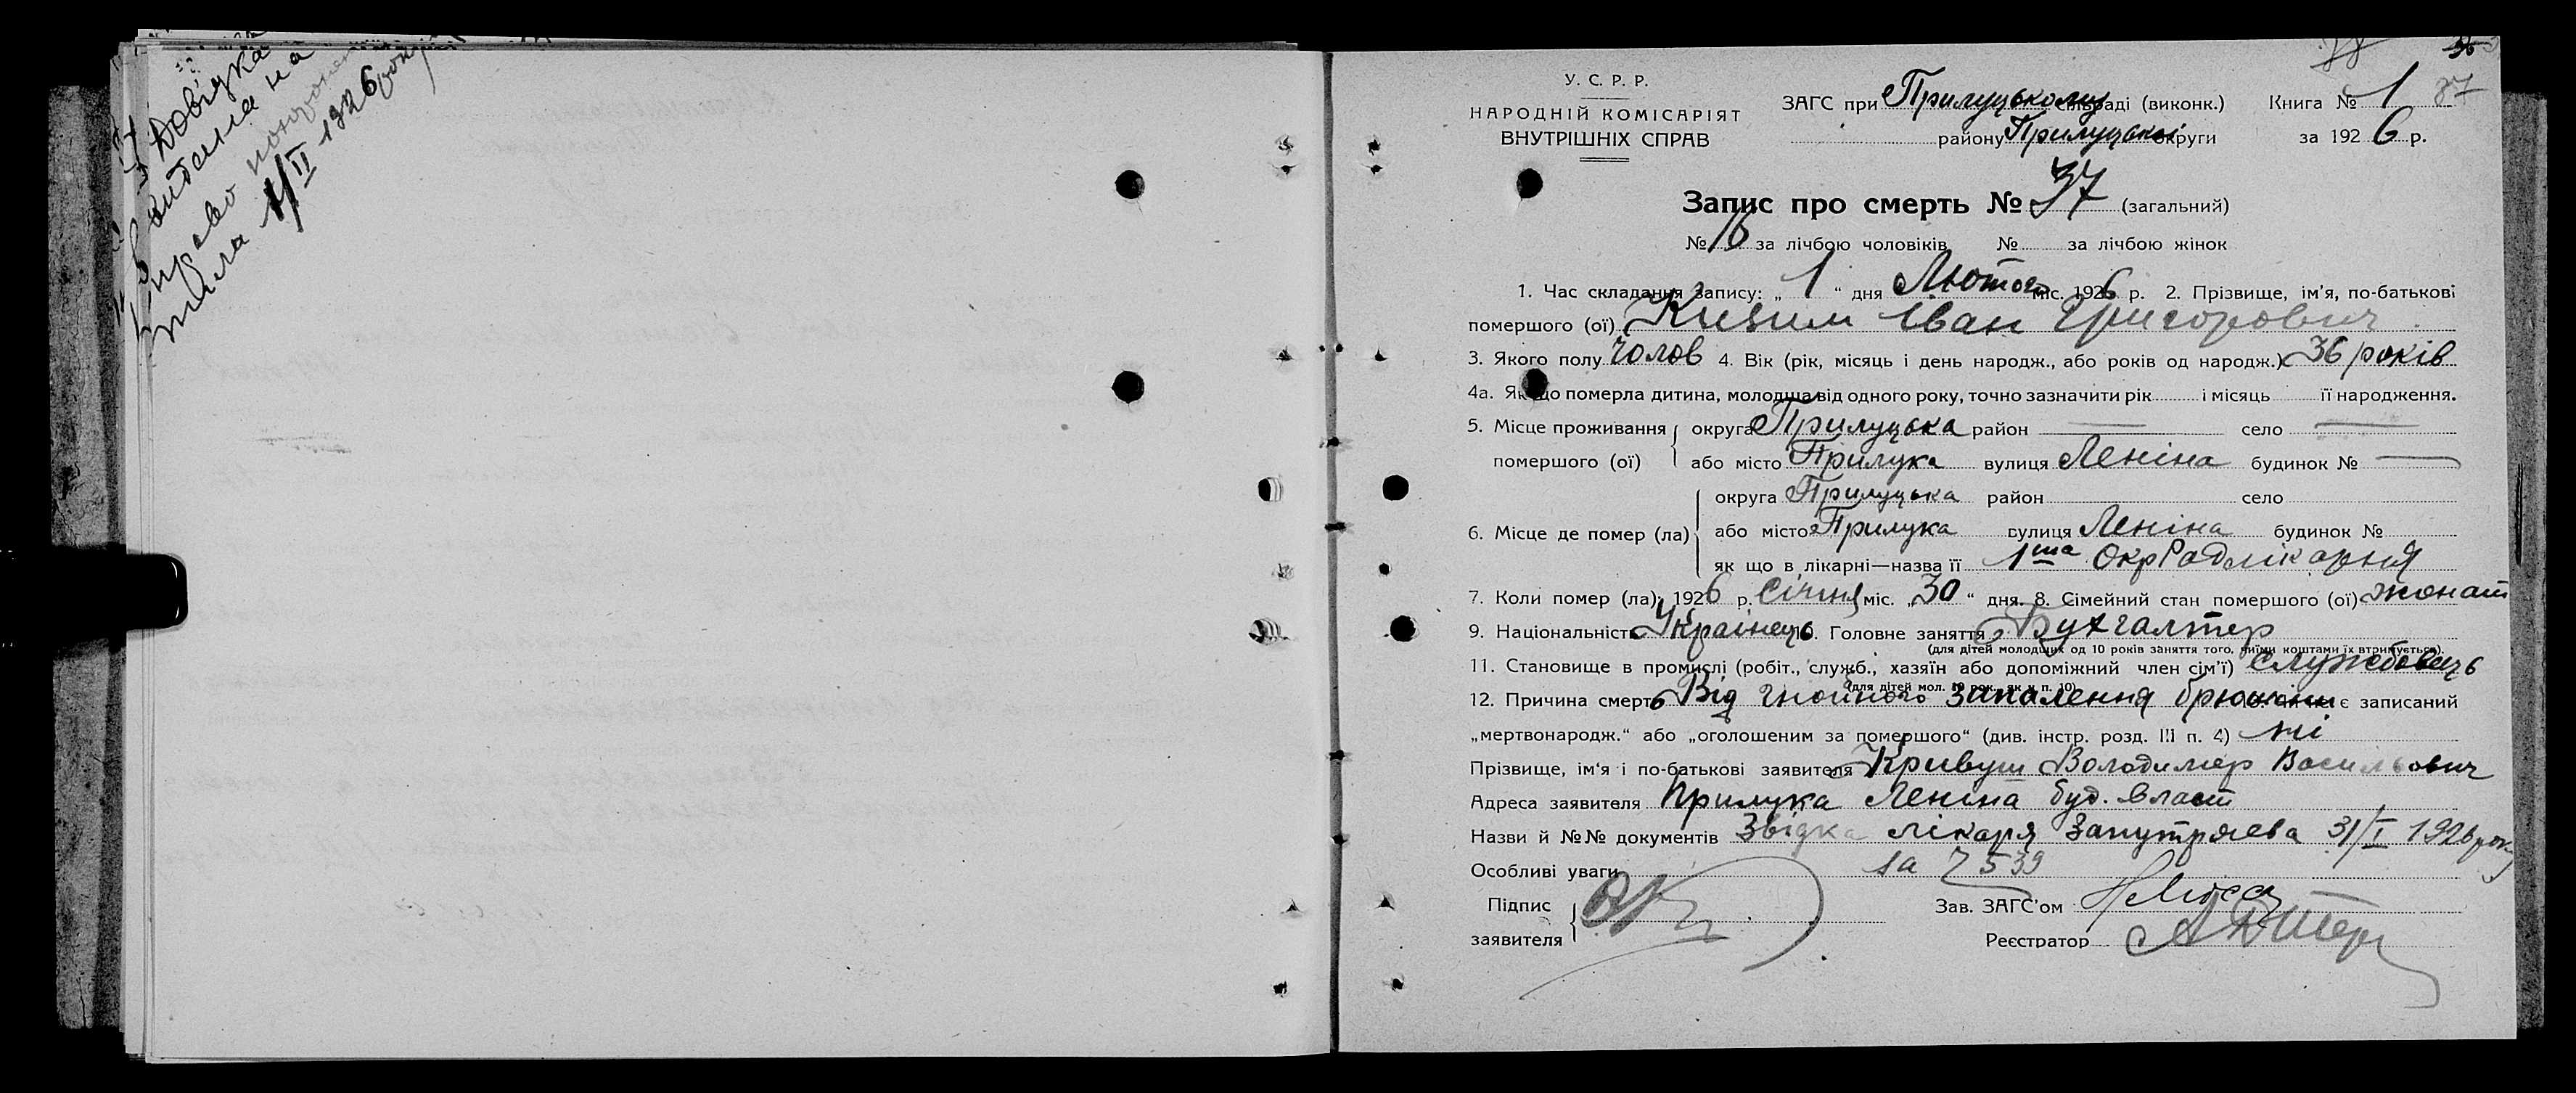 Довідка
видана на
право похорон
тіла 1/II 1926 року
36
87
У. С. Р. Р.
НАРОДНІЙ КОМІСАРІЯТ
ВНУТРІШНІХ СПРАВ
ЗАГС при Прилуцькому міськраді (виконк.) Книга № 1
району Прилуцької округи за 1926 р.
Запис про смерть № 37 (загальний)
№ 16 за лічбою чоловіків № за лічбою жінок
1. Час складання запису: „ 1 “ дня Лютого міс. 1926 р. 2. Прізвище, ім'я, по-батькові
помершого (ої) Кизим Іван Григорович
3. Якого полу чолов 4. Вік (рік, місяць і день народж., або років од народж.) 36 років
4а. Якщо померла дитина, молодша від одного року, точно зазначити рік і місяць її народження.
5. Місце проживання округа Прилуцька район — село —
помершого (ої) або місто Прилука вулиця Леніна будинок № —
округа Прилуцька район село
6. Місце де помер (ла) або місто Прилука вулиця Леніна будинок №
як що в лікарні—назва її 1ша ОкрРадлікарня
7. Коли помер (ла): 1926 р. Січня міс. „ 30 “ дня. 8. Сімейний стан помершого (ої) жонат
9. Національність Українець 10. Головне заняття Бухгалтер
(для дітей молодших од 10 років заняття того, чиїми коштами їх втримується).
11. Становище в промислі (робіт., служб., хазяїн або допоміжний член сім'ї) службовець
(для дітей мол. 10 рок., як у п. 10)
12. Причина смерть Від гнойного запалення брюшини є записаний
„мертвонародж.“ або „оголошеним за помершого“ (див. інстр. розд. III п. 4) ні
Прізвище, ім'я і по-батькові заявителя Кривуш Володимер Васильович
Адреса заявителя Прилука Леніна буд. власт
Назви й №№ документів Звідка лікаря Запутряева 31/I 1926 року
Особливі уваги за 7539
Підпис
заявителя
Зав. ЗАГС'ом
Реєстратор